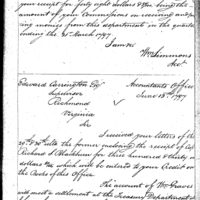 your receipt for forty eight dollars & being the
amount of your Commissions in receiving and
ing money from this department in the quarter
ending the 31 March 1797
I am Sir
Wm Simmons
Acct
Edward Carrington Esqr
Supervisor
Richmond
Virginia
Accountants Office
June 15th 1797
Sir
I received your letters of the
the former enclosing the receipt of Capt
Richard S Blackburn for three hundred & thirty
dollars which will be entered to your Credit on
the Books of this Office
The account of Wm Graves
will meet a settlement at the Treasury Department